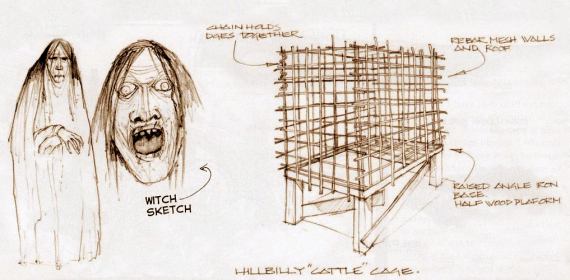 CHAIN HOLDS
DGES TOGETHER
REBAR MESH WALLS
AND ROOF
WITCH
SKETCH
RAISED ANGLE IRON
BASE.
HALF WOOD PLAFORM
HILLBILLY "CATTLE" CAGE.